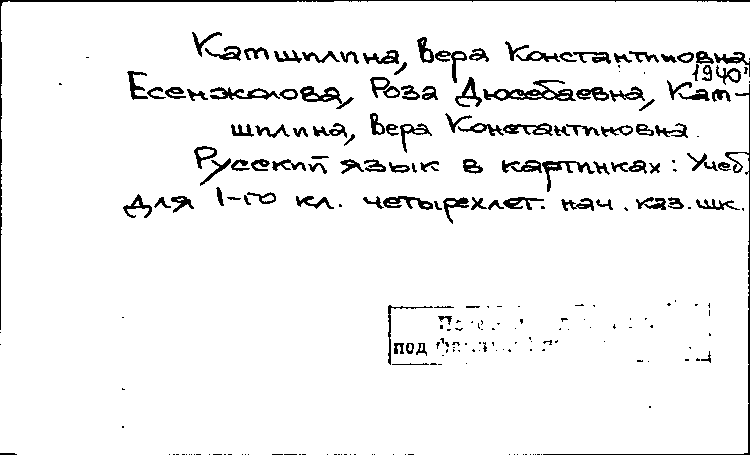 Катшилина, Вера Константиновна
1940
Есенжолова, Роза Дюсебаевна, Кат-
шилина, Вера Константиновна.
Русский язык в картинках: Учеб.
для 1-го кл. четырехлет. нач. каз. шк.
под